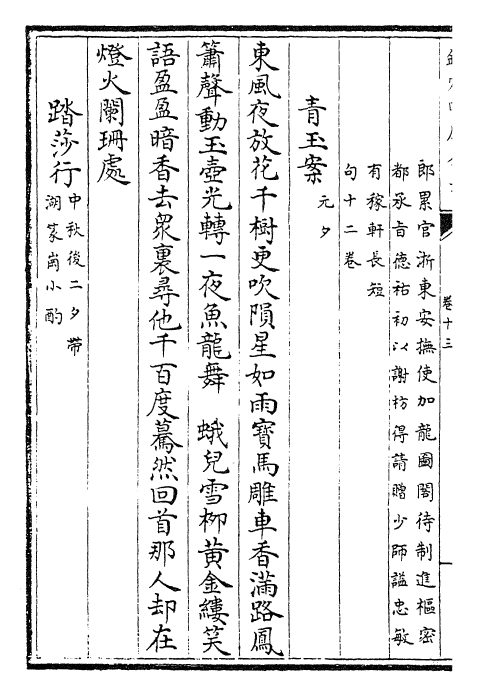 卷十三
郎累官浙東安撫使加龍圖閣待制進樞密
都承旨德祐初以謝枋得請贈少師謚忠敏
有稼軒長短
句十二卷
青玉案 元夕
東風夜放花千樹更吹隕星如雨寶馬雕車香滿路鳳
簫聲動玉壺光轉一夜魚龍舞　蛾兒雪柳黃金縷笑
語盈盈暗香去衆裏尋他千百度驀然回首那人却在
燈火闌珊處
踏莎行 中秋後二夕帶
湖篆崗小酌